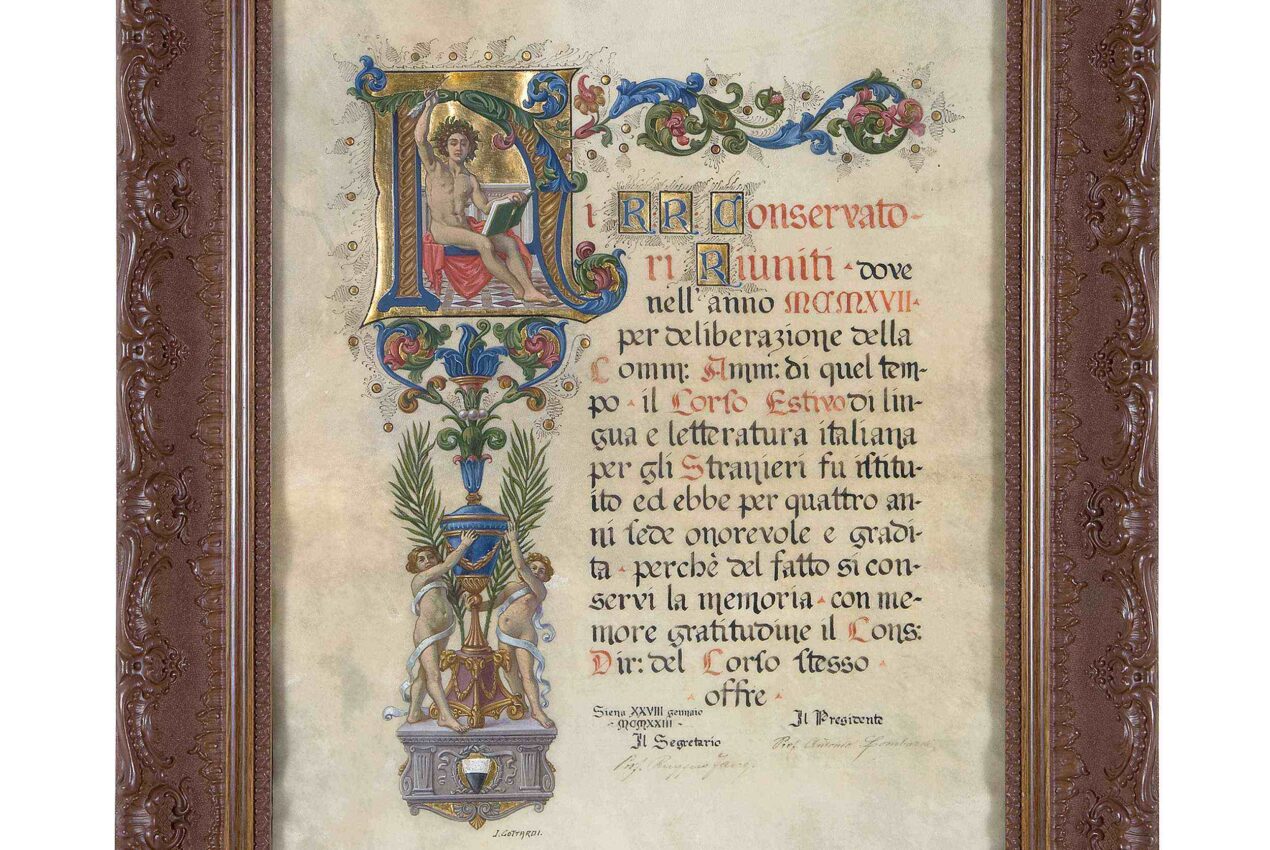 Ai RR Conservato-
ri Riuniti · dove
nell' anno MCMXVII·
per deliberazione della
Comm: Amm: di quel tem-
po · il Corso Estivo di lin-
gua e letteratura italiana
per gli Stranieri fu istitu-
ito ed ebbe per quattro an-
ni sede onorevole e gradi-
ta · perchè del fatto si con-
servi la memoria · con me-
more gratitudine il Cons:
Dir: del Corso stesso ·
· offre ·
Siena XXVIII gennaio
- MCMXXIII -
Il Segretario
Il Presidente
Prof. Antonio
Prof. Ruggero
I. GOTTARDI.